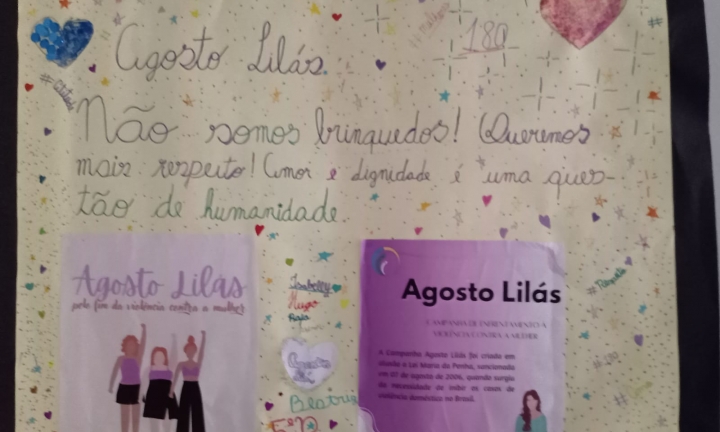 Agosto Lilás.
180
Não somos brinquedos! Queremos
mais respeito! Amor e dignidade é uma ques-
tão de humanidade.
Agosto Lilás
pelo fim da violência contra a mulher
Isabelly
Hugo
Beatriz
5º
Agosto Lilás
CAMPANHA DE ENFRENTAMENTO A
VIOLÊNCIA CONTRA A MULHER
A Campanha Agosto Lilás foi criada em
alusão a Lei Maria da Penha, sancionada
em 07 de agosto de 2006, quando surgiu
da necessidade de inibir os casos de
violência doméstica no Brasil.